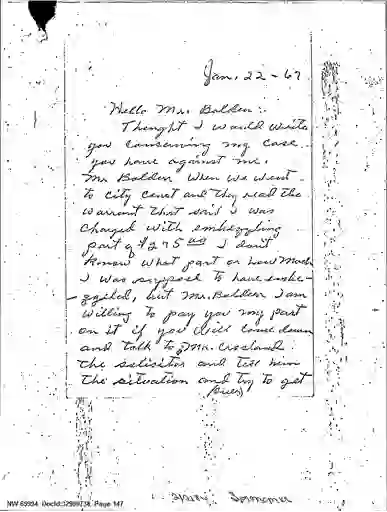 Jan. 22-67
Hello Mr. Balden:
Thought I would write
you concerning my case
you have against me.
Mr Balden when we went
to city court and they read the
warrant that said I was
charged with embezzling
part of $275 00 I don't
know what part or how much
I was suppose to have embe-
zzled, but Mr. Balden I am
willing to pay you my part
on it if you will come down
and talk to Mr. Crosland
the solisitor and tell him
the situation and try to get
(over)
NW 65994 Docld:32989734 Page 147